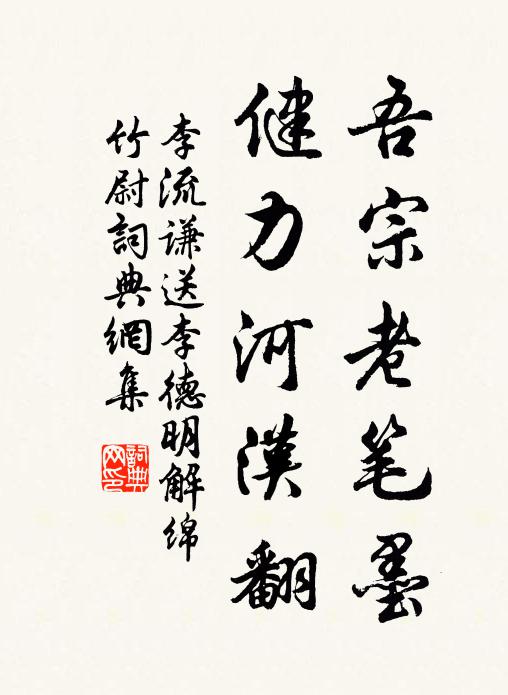 吾宗老笔墨
健力河漢翻
李流谦送李德明解绵
竹尉詞典網集
詞典网印